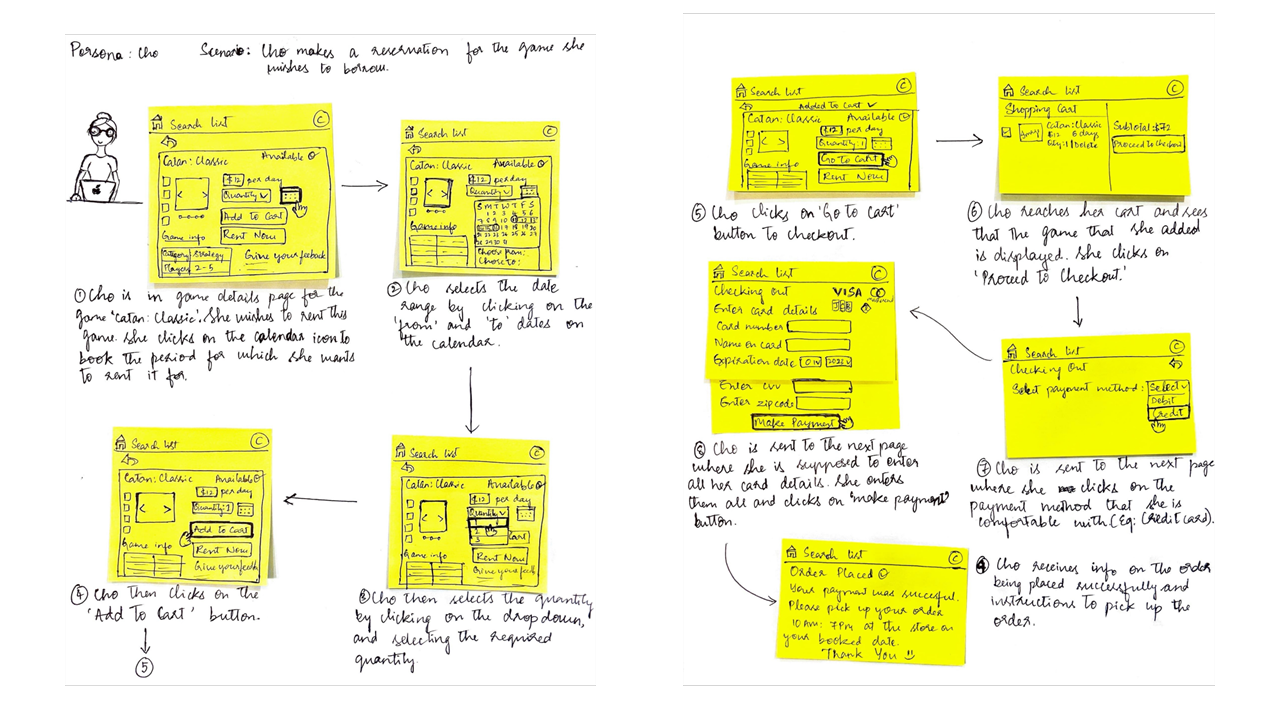 Persona: Cho Scenario: Cho makes a reservation for the game she
wishes to borrow.
Search list C
Catan: Classic Available
$12 per day
Quantity
Add to Cart
Rent Now
Game info
Category Strategy
Players 2-5
Give your feeback
① Cho is in game details page for the
game 'Catan: Classic'. She wishes to rent this
game. She clicks on the calendar icon to
book the period for which she wants
to rent it for.
Search list C
Catan: Classic Available
$12 per day
Quantity
S M T W T F S
Game info
Choose from:
Chose to:
② Cho selects the date
range by clicking on the
'from' and 'to' dates on
the calendar.
Search list C
Catan: Classic Available
$12 per day
Quantity
3
Cart
Rent Now
Game info
Give your feedb
③ Cho then selects the quantity
by clicking on the dropdown,
and selecting the required
quantity.
Search list C
Catan: Classic Available
$12 per day
Quantity: 1
Add to Cart
Rent Now
Game info
Give your feedb
④ Cho then clicks on the
'Add To Cart' button.
⑤
Search list C
Added to Cart ✓
Catan: Classic Available
$12 per day
Quantity: 1
Go To Cart
Rent Now
Game info
⑤ Cho clicks on 'Go to Cart'
button to checkout.
Search list C
Shopping Cart
Catan: Classic
$12 6 days
Qty: 1 | Delete
Subtotal: $72
Proceed to Checkout
⑥ Cho reaches her cart and sees
that the game that she added
is displayed. She clicks on
'Proceed to Checkout.'
Search list C
Checking Out
Select payement method: Select
Debit
Credit
⑦ Cho is sent to the next page
where she clicks on the
payment method that she is
comfortable with (Eg: Credit card).
Search list C
Checking out VISA
Enter card details
Card number
Name on card
Expiration date 2021
Enter CVV
Enter zipcode
Make Payment
⑧ Cho is sent to the next page
where she is supposed to enter
all her card details. She enters
them all and clicks on 'make payment'
button.
Search list C
Order Placed
Your payment was succesful.
Please pick up your order
10 AM: 7PM at the store on
your booked date.
Thank You
Cho receives info on the order
being placed successfully and
instructions to pick up the
order.